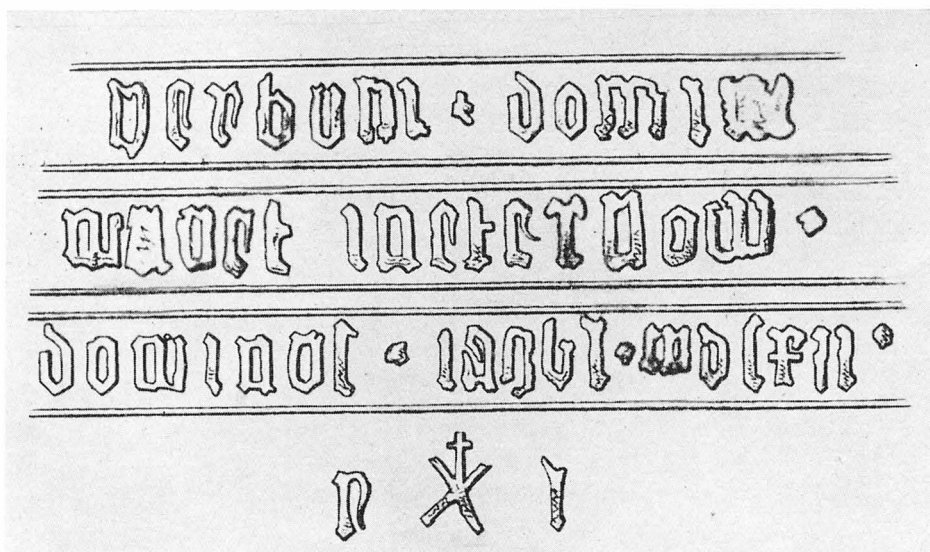 verbum · domini
manet ineternom ·
dominus · · mdlxii ·
n i